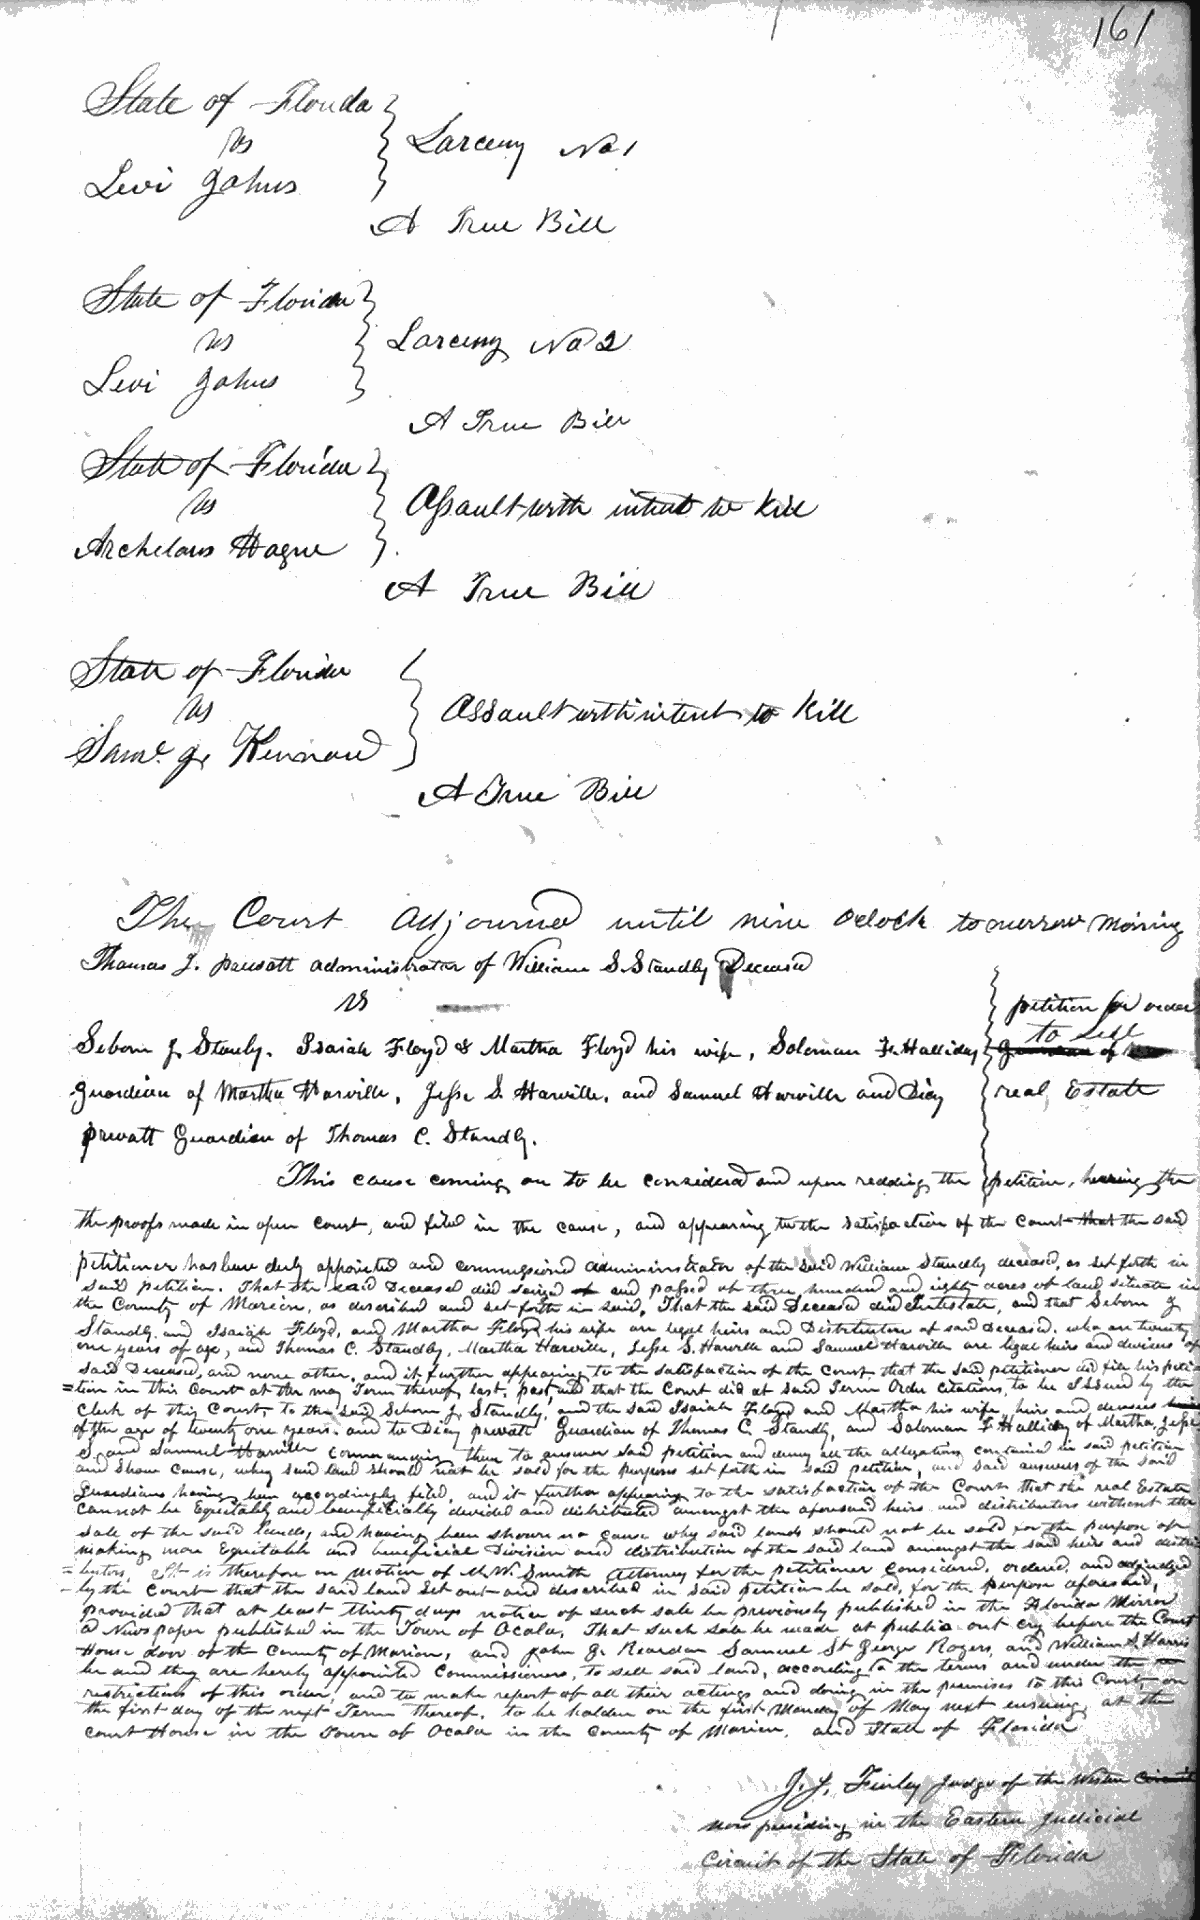 161
State of Florida
vs
Levi Johns
Larceny No 1
A True Bill
State of Florida
vs
Levi Johns
Larceny No 2
A True Bill
State of Florida
vs
Archelaus Hague
Assault with intent to kill
A True Bill
State of Florida
vs
Saml. J. Kennard
Assault with intent to kill
A True Bill
The Court adjourned until nine Oclock tomorrow morning
Thomas J. administrator of William S. Standly Deceased
vs
Seborn J. Standly. Isaiah Floyd & Martha Floyd his wife, Soloman F. Halliday
Guardian of Martha Harville, Jesse S. Harville, and Samuel Harville and Dicy
privatt Guardian of Thomas C. Standly.
petition for order
to sell
Guardian of
real Estate
This cause coming on to be considered and upon redding the petition, hearing the
the proofs made in open court, and filed in the cause, and appearing to the satisfaction of the Court that the said
petitioner has been duly appointed and commissioned administrator of the said William Standly deceased, as set forth in
said petition. That the said Deceased died seized and possd of three hundred and eighty acres of land situate in
the County of Marion, as described and set forth in said. That the said Deceased died Intestate, and that Seborn J
Standly and Isaiah Floyd, and Martha Floyd his wife are legal heirs and Distributers of said Deceased. who are twenty
one years of age, and Thomas C. Standly, Martha Harville, Jesse S. Harville and Samuel Harville are legal heirs and devices of
said Deceased, and none other. and it further appearing to the satisfaction of the Court that the said petitioner did file his peti
=tion in this Court at the may Term thereof last, past, and that the Court did at said Term Order citations, to be Issued by the
Clerk of this Court, to the said Seborn J. Standly, and the said Isaiah Floyd and Martha his wife, heirs and devisees
of the age of twenty one years. and to Dicy privatt Guardian of Thomas C. Standly, and Soloman F. Halliday of Martha, Jesse
S. and Samuel Harville commanding them to answer said petition and deny all the allegations contained in said petition
and Show Cause, why said land should not be sold for the purposes set forth in said petition, and said answers of the said
Guardians having been accordingly filed, and it further appearing to the satisfaction of the Court that the real Estate
cannot be Equitably and beneficially divided and distributed amongst the aforesaid heirs and distributers without the
sale of the said lands, and having been shown no cause why said lands should not be sold for the purpose of
making more Equitable and beneficial Division and distribution of the said land amongst the said heirs and distri
=buters. It is therefore on motion of M. W. Smith Attorney for the petitioner Considered, ordered, and adjudged
-by the Court that the said land set out and described in said petition be sold, for the purpose aforesaid,
provided that at least thirty days notice of such sale be previously published in the Florida Mirror
a News paper published in the Town of Ocala. That such sale be made at public out cry before the Court
House door of the County of Marion, and John G. Reardon Samuel St George Rogers, and William S. Harris
be and they are hereby appointed Commissioners, to sell said land, according to the terms and under the
restrictions of this order, and to make report of all their actings and doing in the premises to this Court, on
the first day of the next Term thereof, to be holden on the first Monday of May next ensuing, at the
court House in the Town of Ocala in the County of Marion, and State of Florida
J. J. Finley Judge of the Western Circuit
now presiding in the Eastern Judicial
Circuit of the State of Florida